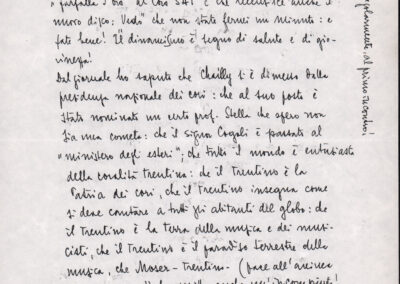 "farfalla d'oro" al Coro SAT e che recensisce anche il
nuovo disco. Vedo che non state fermi un minuto: e
fate bene! Il dinamismo è segno di salute e di gio-
vinezza!
Dal giornale ho saputo che Chailly si è dimesso dalla
presidenza nazionale dei cori: che al suo posto è
stato nominato un certo prof. Stella che spero non
sia una cometa: che il signor Cogoli è passato al
"ministero degli esteri"; che tutto il mondo è entusiasta
della coralità trentina: che il Trentino è la
Patria dei cori, che il Trentino insegna come
si deve cantare a tutti gli abitanti del globo: che
il Trentino è la terra della musica e dei musi-
cisti, che il Trentino è il paradiso terrestre della
musica, che Moser - Trentino - (pace all'anima
al primo incontro!